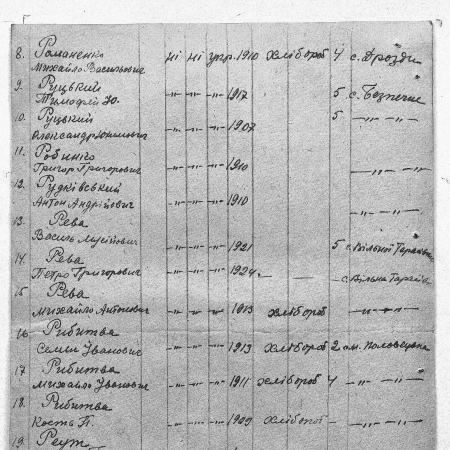 8. Романенко
Михайло Васильович ні ні укр. 1910 хлібороб 4 с. Дрозди
9. Руцький
Тимофій Ю. -"- -"- -"- 1917 5 с. Безпечне
10. Руцький 5 -"- -"-
Олександр Юхимович -"- -"- -"- 1907
11. Робинко
Григор Григорович -"- -"- -"- 1910 -"- -"-
12. Рудківський
Антон Андрійович -"- -"- -"- 1910 -"- -"-
13. Рева
Василь Мусійович -"- -"- -"- 1921 5 с. Вільна
14. Рева
Петро Григорович -"- -"- -"- 1924. — — с. Вільна
15 Рева
Михайло Антонович -"- -"- -"- 1913 хлібороб -"- -"-
16 Рибитва
Семен Іванович -"- -"- -"- 1913 хлібороб 2
17. Рибитва
Михайло Іванович -"- -"- -"- 1911 хлібороб 4 -"- -"-
18. Рибитва
Кость П. -"- -"- -"- 1909 хлібороб - -"- -"-
19. Реут